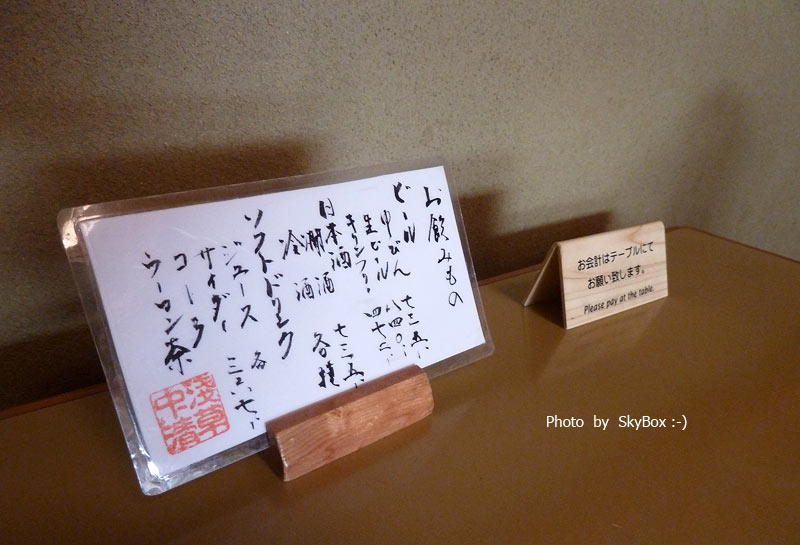 お飲みもの
ビール
中びん 七三五、
生ビール 八四〇、
キリンフリー 四七二、
日本酒
燗酒 七三五、
冷酒 各種
ソフトドリンク
ジュース 各
サイダー
コーラ
ウーロン茶
浅草
中清
お会計はテーブルにて
お願い致します。
Please pay at the table.
Photo by SkyBox :-)